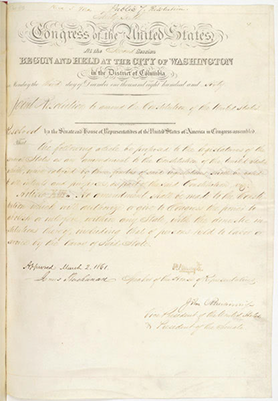 Congress of the United States
At the Second Session
BEGUN AND HELD AT THE CITY OF WASHINGTON
in the District of Columbia
Monday the third day of December one thousand eight hundred and sixty
Joint Resolution to amend the Constitution of the United States
Resolved by the Senate and House of Representatives of the United States of America in Congress assembled
That the following article be proposed to the Legislatures of the
several States as an amendment to the Constitution of the United States
which, when ratified by three fourths of said Legislatures, shall be valid
to all intents and purposes as part of the said Constitution
No amendment shall be made to the Constitution
which will authorize or give to Congress the power to
abolish or interfere within any State with the domestic
institutions thereof, including that of persons held to labor or
service by the laws of said State
Approved March 2, 1861
James Buchanan
Speaker of the House of Representatives
Vice President of the United States
President of the Senate